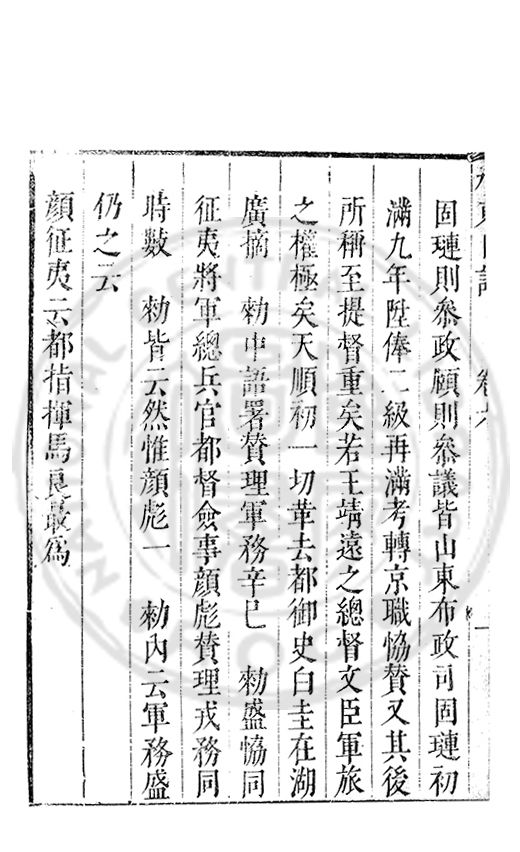 固璉則參政顧則參議皆山東布政司固璉初
滿九年陞俸二級再滿考轉京職恊贊又其後
所稱至提督重矣若王靖遠之總督文臣軍旅
之權極矣天順初一切革去都御史白圭在湖
廣摘　勑中語署贊理軍務辛巳　勑盛恊同
征夷將軍總兵官都督僉事顏彪贊理戎務同
時數　勑皆云然惟顏彪一　勑內云軍務盛
仍之云
顏征夷云都指揮馬良最為